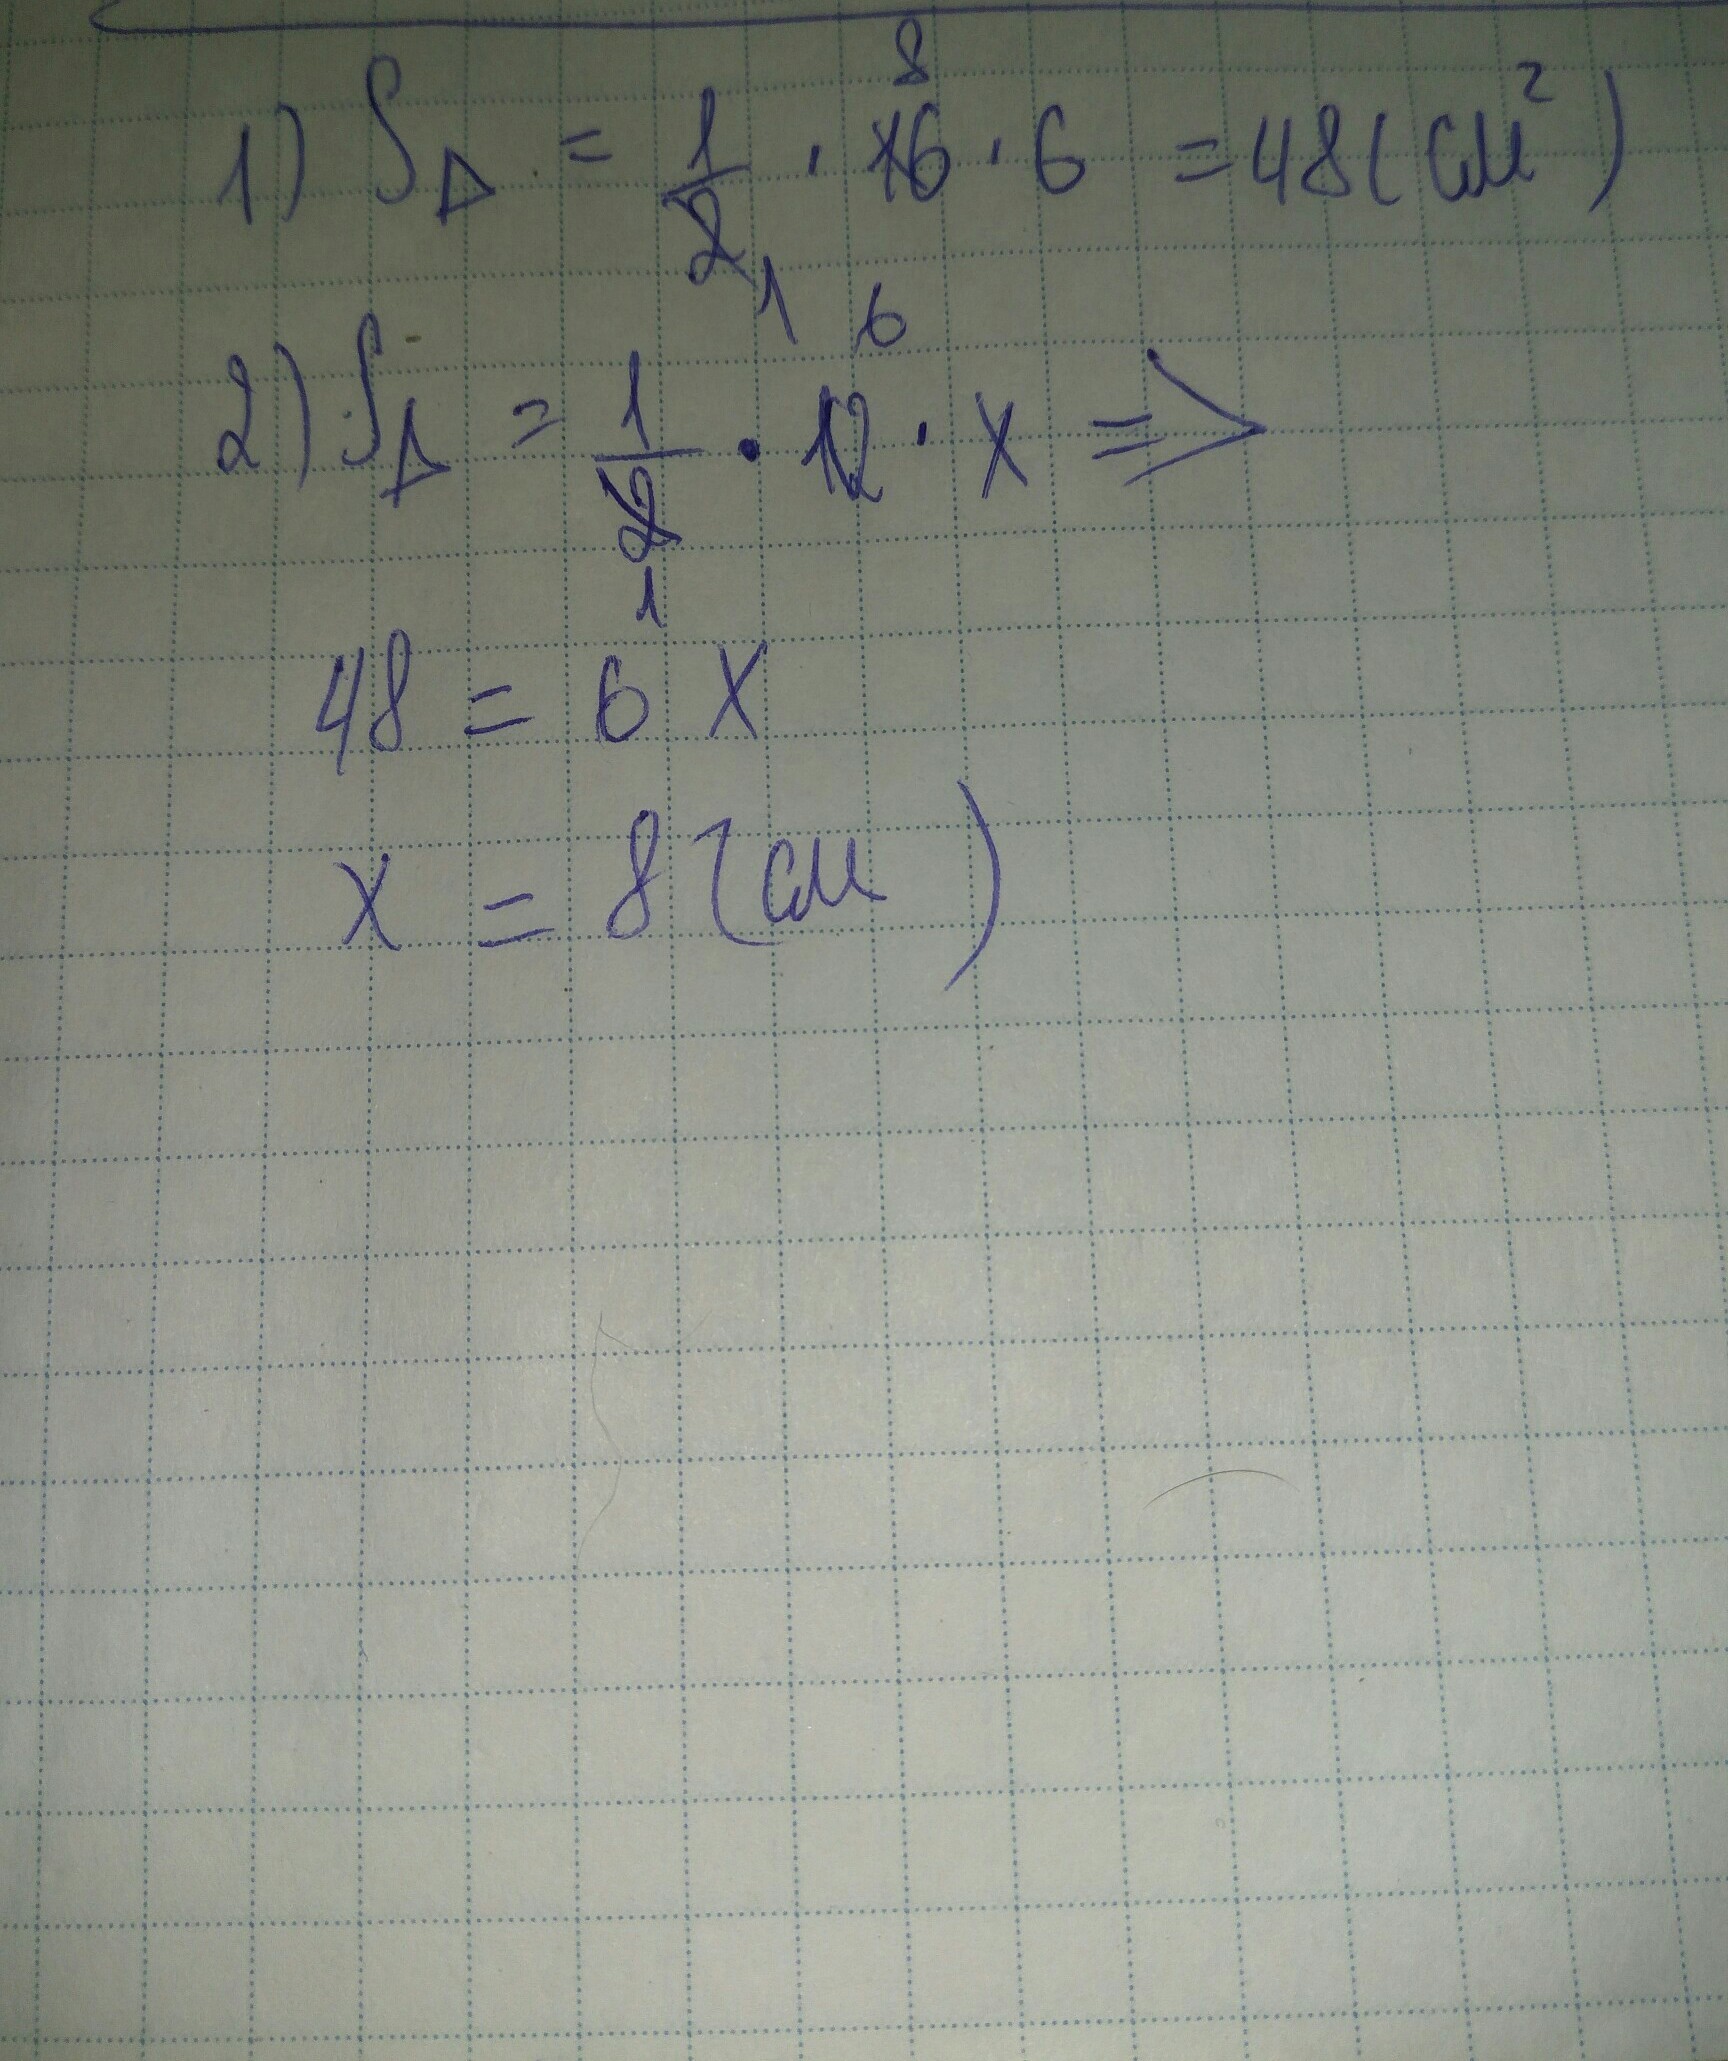 1) S△ = 1/2 · 16 · 6 = 48 (см²)
8
1
2) S△ = 1/2 · 12 · x =>
6
1
48 = 6 x
x = 8 (см)